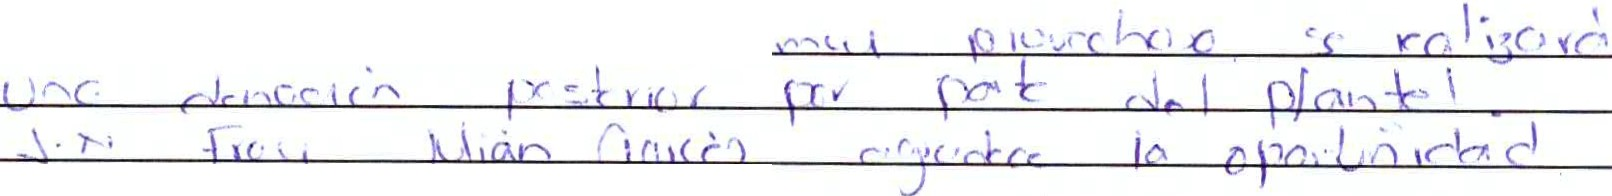 muy provechoso se realizará
una donación postrior por parte del plantel.
J.N. Fray Julián Garcés agradece la oportunidad